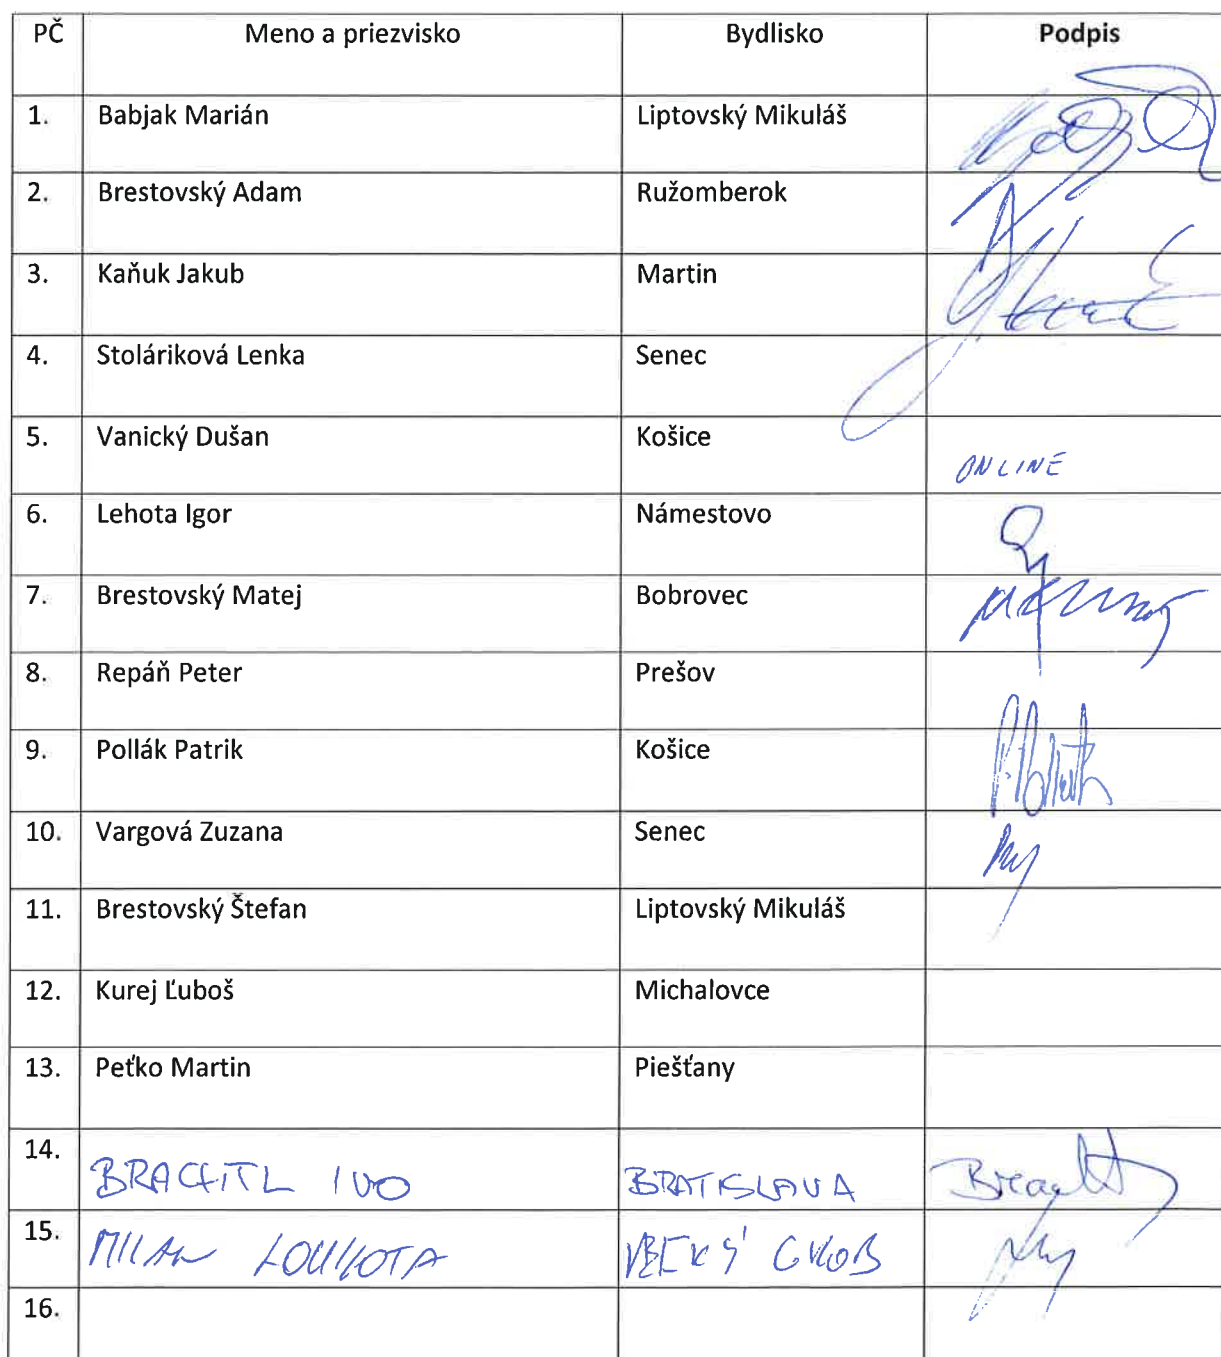 PČ Meno a priezvisko Bydlisko Podpis
1. Babjak Marián Liptovský Mikuláš
2. Brestovský Adam Ružomberok
3. Kaňuk Jakub Martin
4. Stoláriková Lenka Senec
5. Vanický Dušan Košice ONLINE
6. Lehota Igor Námestovo
7. Brestovský Matej Bobrovec
8. Repáň Peter Prešov
9. Pollák Patrik Košice
10. Vargová Zuzana Senec
11. Brestovský Štefan Liptovský Mikuláš
12. Kurej Ľuboš Michalovce
13. Peťko Martin Piešťany
14. BRACHTL IVO BRATISLAVA
15. MILAN LOUKOTA GROB
16.